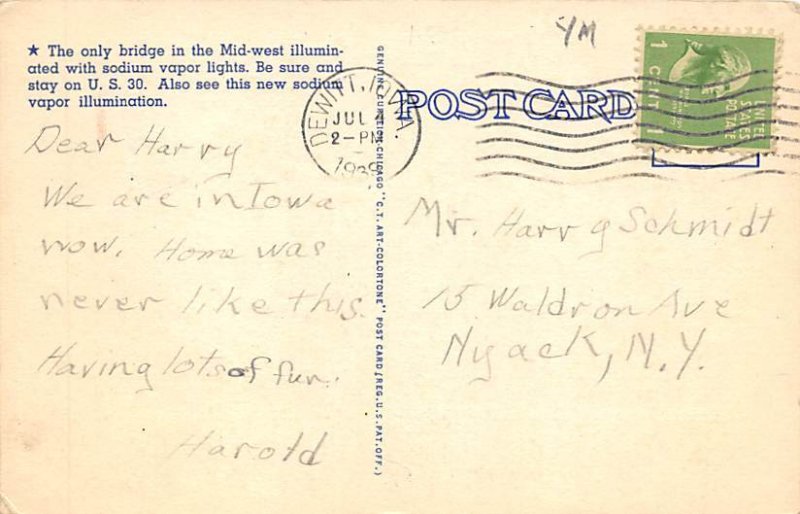 ★ The only bridge in the Mid-west illumin-
ated with sodium vapor lights. Be sure and
stay on U. S. 30. Also see this new sodium
vapor illumination.
Dear Harry
We are in Iowa
now. Home was
never like this.
Having lots of fun.
Harold
GENUINE CURTEICH-CHICAGO "C.T. ART-COLORTONE" POST CARD (REG. U.S. PAT. OFF.)
YM
DEWITT, IOWA
JUL 4
2-PM
1939
POST CARD
1 CENT 1
UNITED
STATES
POSTAGE
Mr. Harry Schmidt
15 Waldron Ave
Nyack, N.Y.